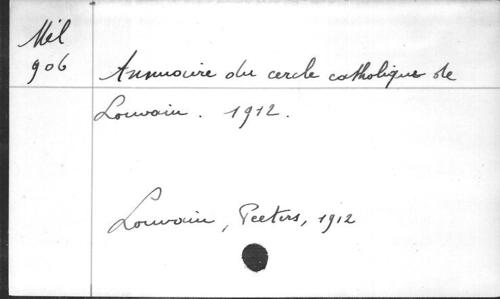 Mél
906
Annuaire du cercle catholique de
Louvain. 1912.
Louvain, Peeters, 1912